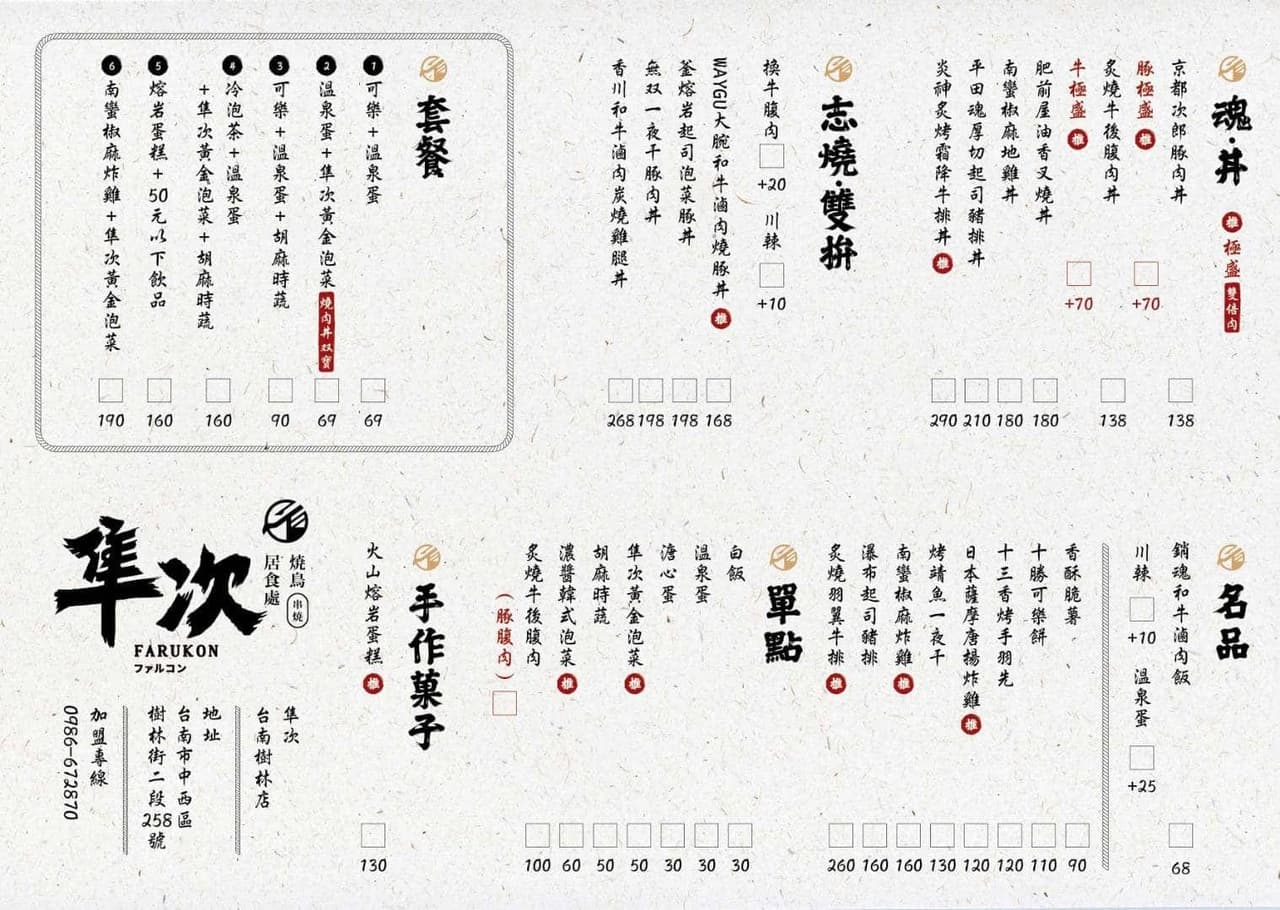 魂·丼
推 極盛 雙倍肉
京都次郎豚肉丼 138
豚極盛 推 +70
炙燒牛後腹肉丼 138
牛極盛 推 +70
肥前屋油香叉燒丼 180
南蠻椒麻地雞丼 180
平田魂厚切起司豬排丼 210
炎神炙烤霜降牛排丼 推 290
志燒·雙拚
換牛腹肉 +20 川辣 +10
WAYGU大腕和牛滷肉燒豚丼 推 168
釜熔岩起司泡菜豚丼 198
無双一夜干豚肉丼 198
香川和牛滷肉炭燒雞腿丼 268
套餐
1 可樂+溫泉蛋 69
2 溫泉蛋+隼次黃金泡菜 燒肉丼双寶 69
3 可樂+溫泉蛋+胡麻時蔬 90
4 冷泡茶+溫泉蛋
+隼次黃金泡菜+胡麻時蔬 160
5 熔岩蛋糕+50元以下飲品 160
6 南蠻椒麻炸雞+隼次黃金泡菜 190
名品
銷魂和牛滷肉飯 68
川辣 +10 溫泉蛋 +25
香酥脆薯 90
十勝可樂餅 110
十三香烤手羽先 120
日本薩摩唐揚炸雞 推 120
烤靖魚一夜干 130
南蠻椒麻炸雞 推 160
瀑布起司豬排 160
炙燒羽翼牛排 推 260
單點
白飯 30
溫泉蛋 30
溏心蛋 30
隼次黃金泡菜 推 50
胡麻時蔬 50
濃醬韓式泡菜 推 60
炙燒牛後腹肉 100
(豚腹肉)
手作菓子
火山熔岩蛋糕 推 130
燒鳥 串燒
居食處
隼次
FARUKON
ファルコン
隼次
台南樹林店
地址
台南市中西區
樹林街二段258號
加盟專線
0986-672870